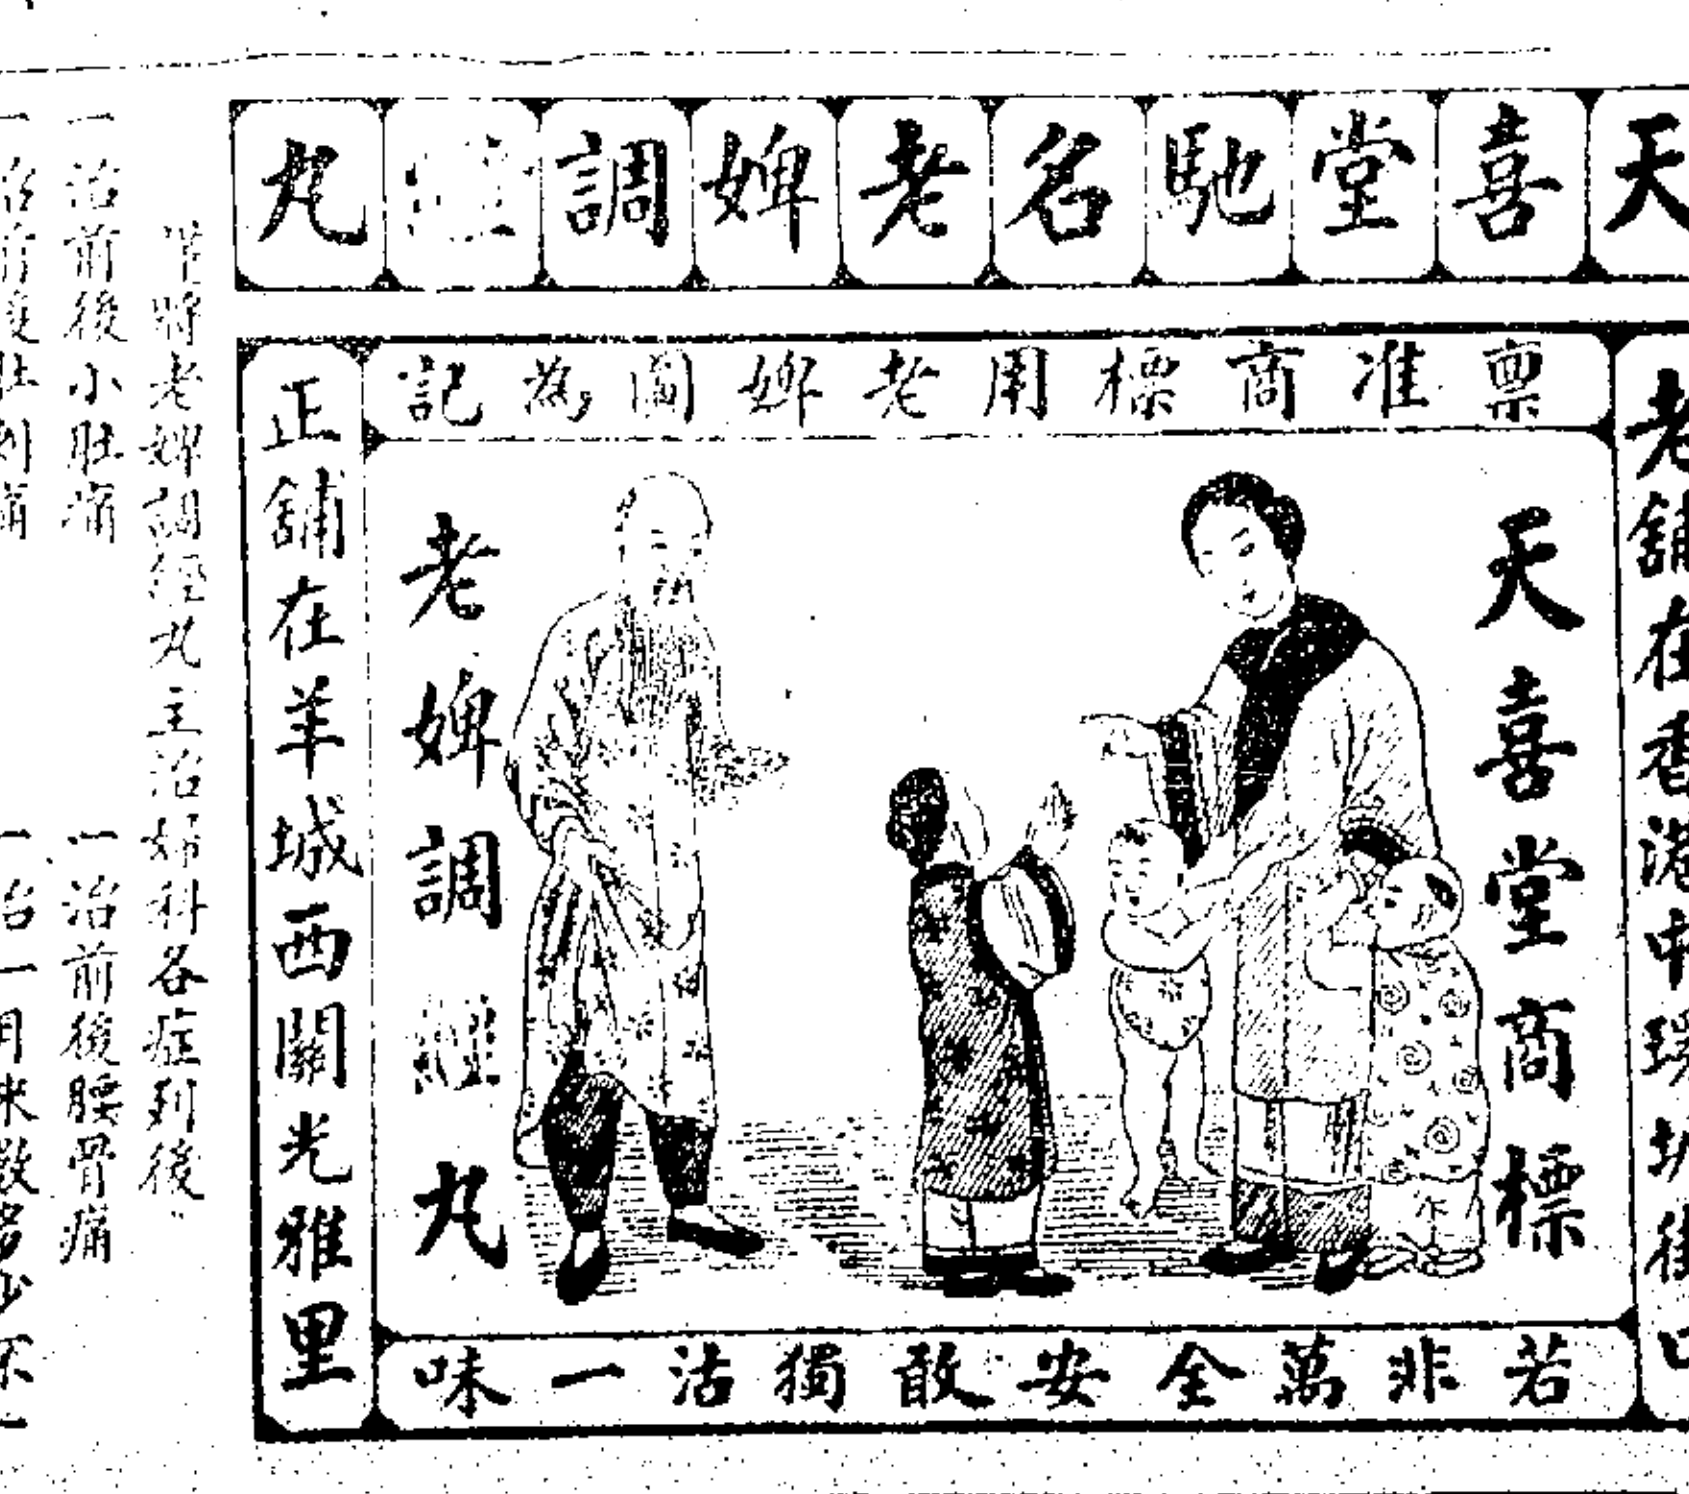 天喜堂馳名老婢調經丸
稟准商標用老婢圖為記
老舖在香港中環坑街口
天喜堂商標
老婢調經丸
正舖在羊城西關光雅里
若非萬全安敢獨沽一味
將老婢調經丸主治婦科各症列後
一治前後小肚痛
一治前後腰骨痛
一治前後肚刺痛
一治一月來數多少不